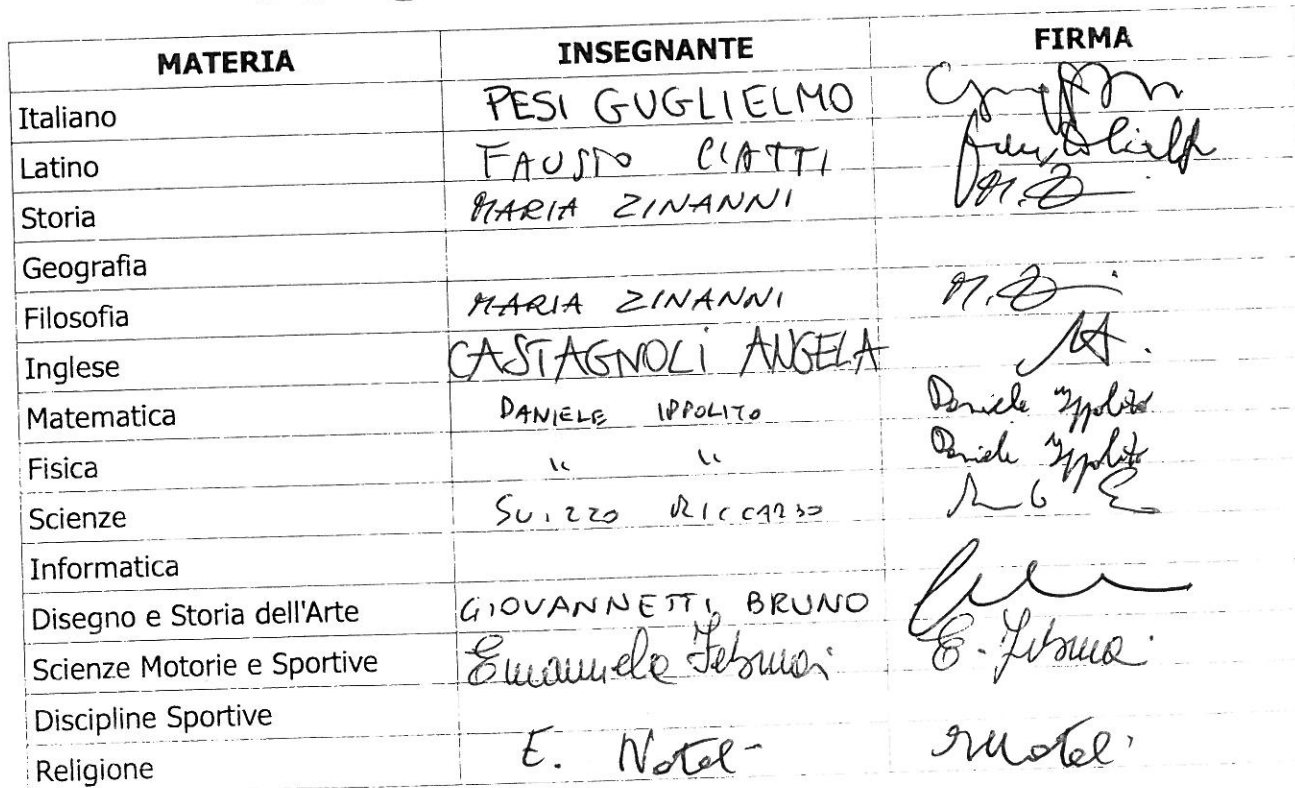 MATERIA INSEGNANTE FIRMA
Italiano PESI GUGLIELMO
Latino FAUSTO CIATTI
Storia MARIA ZINANNI M. Z
Geografia
Filosofia MARIA ZINANNI M. Z
Inglese CASTAGNOLI ANGELA
Matematica DANIELE IPPOLITO Daniele Ippolito
Fisica " " Daniele Ippolito
Scienze SUIZZO RICCARDO
Informatica
Disegno e Storia dell'Arte GIOVANNETTI BRUNO
Scienze Motorie e Sportive Emanuela E.
Discipline Sportive
Religione E.